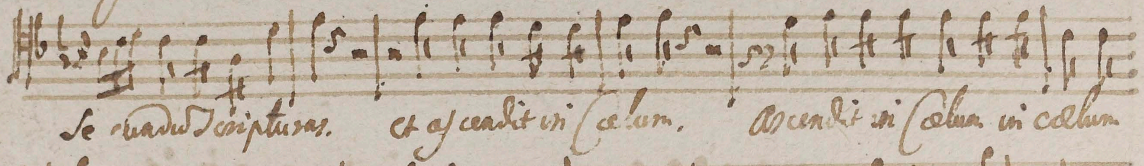 Se cundu Scripturas. et ascendit in Cœlum. ascendit in Cœlum in cœlum